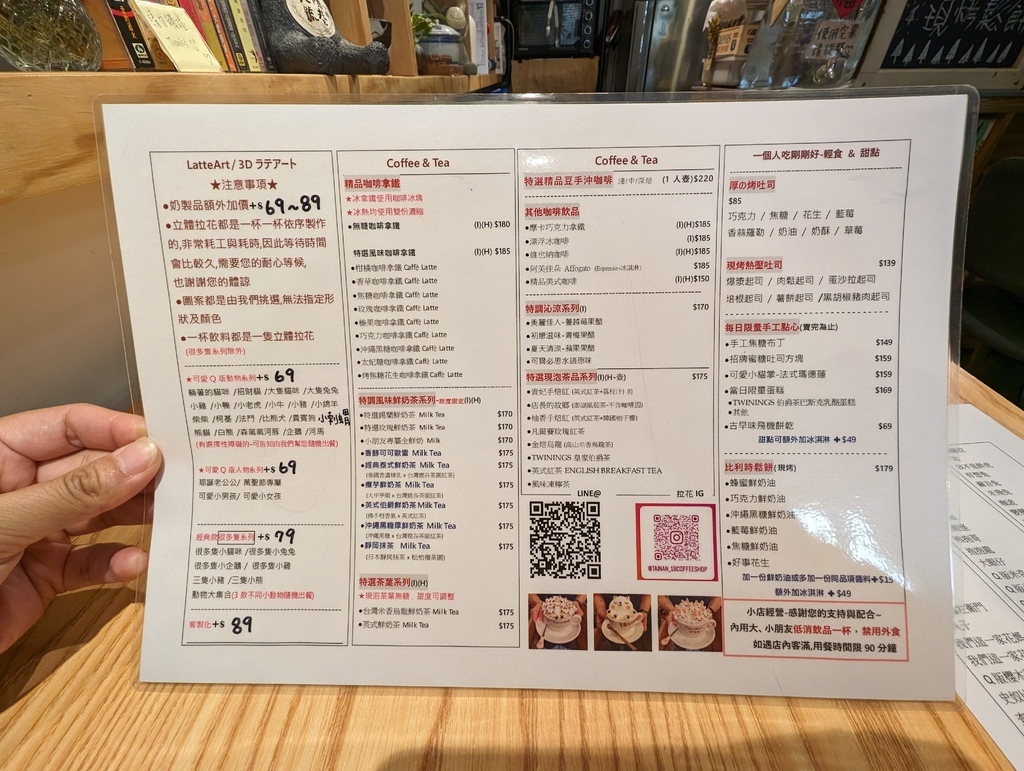 LatteArt / 3D ラテアート
★注意事項★
●奶製品額外加價+$69~89
●立體拉花都是一杯一杯依序製作
的,非常耗工與耗時,因此等待時間
會比較久,需要您的耐心等候,
也謝謝您的體諒
●圖案都是由我們挑選,無法指定形
狀及顏色
●一杯飲料都是一隻立體拉花
(很多隻系列除外)
★可愛 Q 版動物系列+$ 69
躺著的貓咪 /招財貓 /大隻貓咪 /大隻兔兔
小雞 /小鴨 /小老虎 /小牛 /小豬 /小綿羊
柴柴 /柯基 /法鬥 /比熊犬 /貴賓狗
熊貓 /白熊 /森氣氣河豚 /企鵝 /河馬
(有選擇性障礙的~可告知由我們幫您隨機出餐)
★可愛 Q 版人物系列+$ 69
耶誕老公公/ 萬聖節專屬
可愛小男孩/ 可愛小女孩
經典款很多隻系列+$ 79
很多隻小貓咪 /很多隻小兔兔
很多隻小企鵝 / 很多隻小雞
三隻小豬 /三隻小熊
動物大集合(3 款不同小動物隨機出餐)
客製化+$ 89
Coffee & Tea
精品咖啡拿鐵
★冰拿鐵使用咖啡冰塊
★冰熱均使用雙份濃縮
●無糖咖啡拿鐵 (I)(H) $180
特選風味咖啡拿鐵 (I)(H) $185
●柑橘咖啡拿鐵 Caffè Latte
●香草咖啡拿鐵 Caffè Latte
●焦糖咖啡拿鐵 Caffè Latte
●玫瑰咖啡拿鐵 Caffè Latte
●榛果咖啡拿鐵 Caffè Latte
●巧克力咖啡拿鐵 Caffè Latte
●沖繩黑糖咖啡拿鐵 Caffè Latte
●太妃糖咖啡拿鐵 Caffè Latte
●烤焦糖花生咖啡拿鐵 Caffè Latte
特調風味鮮奶茶系列-甜度固定(I)(H)
●特選錫蘭鮮奶茶 Milk Tea $170
●特選玫瑰鮮奶茶 Milk Tea $170
●小朋友專屬全鮮奶 Milk $170
●香醇可可歐蕾 Milk Tea $175
●經典泰式鮮奶茶 Milk Tea $175
●芋鮮奶茶 Milk Tea $175
●英式伯爵鮮奶茶 Milk Tea $175
●沖繩黑糖厚鮮奶茶 Milk Tea $175
●靜岡抹茶 Milk Tea $175
(日本靜岡抹茶 x 松柏嶺茶園)
特選茶葉系列(I)(H)
★現泡茶葉無糖，甜度可調整
●台灣米香烏龍鮮奶茶 Milk Tea $175
●英式鮮奶茶 Milk Tea $175
Coffee & Tea
特選精品豆手沖咖啡 淺/中/深焙 (1 人壺)$220
其他咖啡飲品
●摩卡巧克力拿鐵 (I)(H)$185
●漂浮冰咖啡 (I)$185
●維也納咖啡 (I)(H)$185
●阿芙佳朵 Affogato (Espresso+冰淇淋) $185
●精品美式咖啡 (I)(H)$150
特調沁涼系列(I) $170
●美麗佳人-蔓越莓果醋
●初戀滋味-青梅果醋
●夏天清涼-蘋果果醋
●可爾必思水語原味
特選現泡茶品系列(I)(H-壺) $175
●貴妃手焙紅 (英式紅茶+荔枝汁)
●店長的故鄉
●柚香手焙紅 (英式紅茶+韓國柚子醬)
●凡爾賽玫瑰紅茶
●金焙烏龍 (高山米香烏龍茶)
●TWININGS 皇家伯爵茶
●英式紅茶 ENGLISH BREAKFAST TEA
●風味凍檸茶
LINE@
拉花 IG
@TAINAN_1BCOFFEESHOP
一個人吃剛剛好-輕食 & 甜點
厚の烤吐司
$85
巧克力 / 焦糖 / 花生 / 藍莓
香蒜羅勒 / 奶油 / 奶酥 / 草莓
現烤熱壓吐司 $139
爆漿起司 / 肉鬆起司 / 蛋沙拉起司
培根起司 / 薯餅起司 /黑胡椒豬肉起司
每日限量手工點心(賣完為止)
●手工焦糖布丁 $149
●招牌蜜糖吐司方塊 $159
●可愛小貓掌-法式瑪德蓮 $159
●當日限量蛋糕 $169
●TWININGS 伯爵茶巴斯克乳酪蛋糕
●其他
●古早味飛機餅乾 $69
甜點可額外加冰淇淋 ✚$49
比利時鬆餅(現烤) $179
●蜂蜜鮮奶油
●巧克力鮮奶油
●沖繩黑糖鮮奶油
●藍莓鮮奶油
●焦糖鮮奶油
●好事花生
加一份鮮奶油或多加一份同品項醬料✚$15
額外加冰淇淋 ✚$49
小店經營-感謝您的支持與配合~
內用大、小朋友低消飲品一杯，禁用外食
如遇店內客滿,用餐時間限 90 分鐘